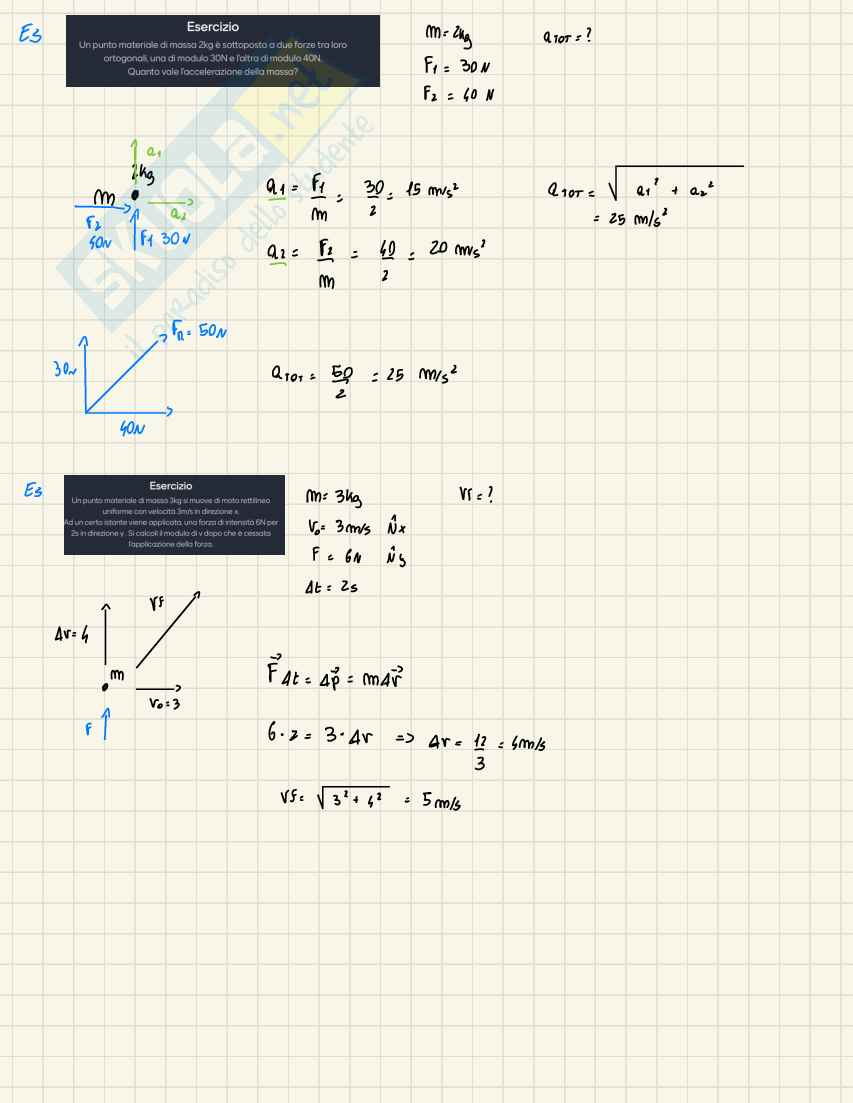 Es
Esercizio
Un punto materiale di massa 2kg è sottoposto a due forze tra loro
ortogonali, una di modulo 30N e l'altra di modulo 40N.
Quanto vale l'accelerazione della massa?
m = 2kg
F1 = 30 N
F2 = 40 N
a TOT = ?
SKUOLA.net
il paradiso dello studente
a1
2kg
m
a2
F2
40N
F1 30 N
a1 = F1/m = 30/2 = 15 m/s²
a2 = F2/m = 40/2 = 20 m/s²
a TOT = √(a1² + a2²)
= 25 m/s²
FR = 50N
30N
40N
a TOT = 50/2 = 25 m/s²
Es
Esercizio
Un punto materiale di massa 3kg si muove di moto rettilineo
uniforme con velocità 3m/s in direzione x.
Ad un certo istante viene applicata, una forza di intensità 6N per
2s in direzione y . Si calcoli il modulo di v dopo che è cessata
l'applicazione della forza.
m = 3kg
v₀ = 3 m/s N̂x
F = 6N N̂y
Δt = 2s
vf = ?
vf
Δv = 4
m
v₀ = 3
F
F⃗ Δt = Δp⃗ = mΔv⃗
6 · 2 = 3 · Δv => Δv = 12/3 = 4m/s
vf = √(3² + 4²) = 5 m/s